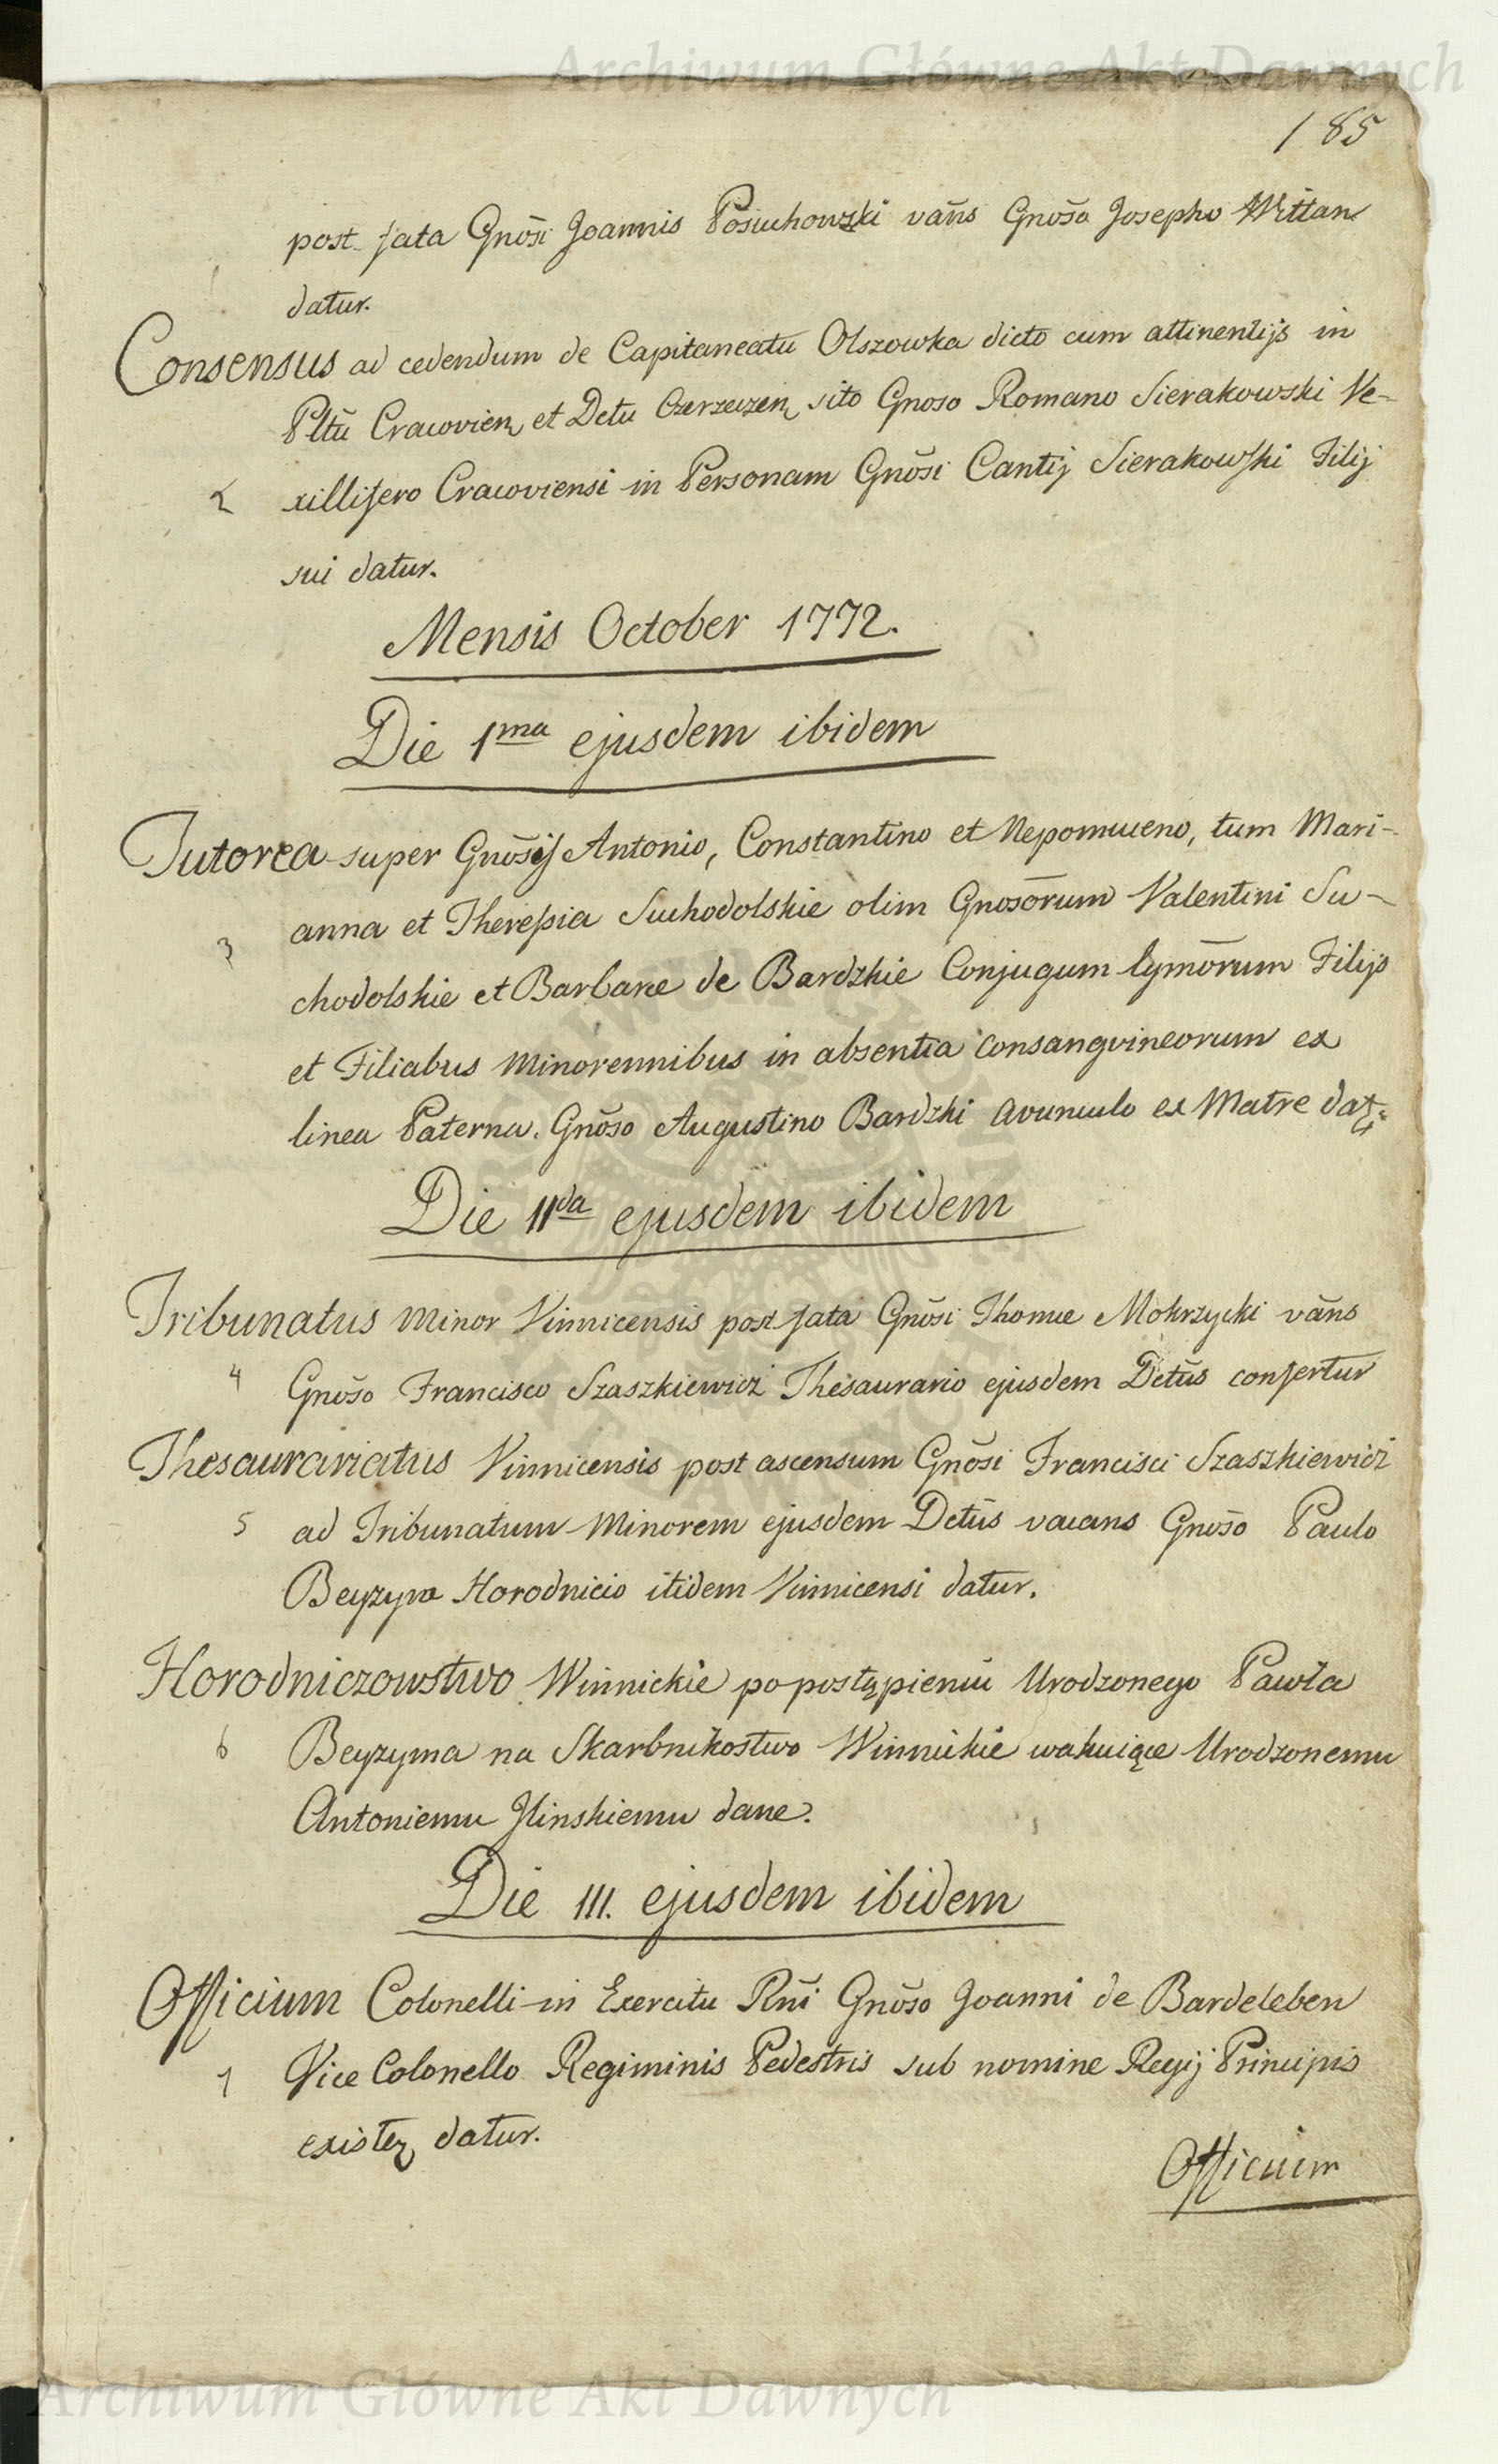 Archiwum Główne Akt Dawnych
185
post fata Gnõsi Joannis Posuchowski vañs Gnõso Josepho Wittan
datur.
Consensus ad cedendum de Capitaneatu Olszowka dicto cum attinentijs in
Pltũ Cracovien et Dctu Czerzecen sito Gnoso Romano Sierakowski Ve-
2 xillifero Cracoviensi in Personam Gnõsi Cantij Sierakowski Filij
sui datur.
Mensis October 1772.
Die 1ma ejusdem ibidem
Tutorea super Gnõsis Antonio, Constantino et Nepomuceno, tum Mari-
anna et Theressia Suchodolskie olim Gnosõrum Valentini Su-
3 chodolskie et Barbare de Bardzkie Conjugum Lgmõrum Filijs
et Filiabus Minorennibus in absentia consangvineorum ex
linea Paterna. Gnõso Augustino Bardzki avunculo ex Matre dat:
Die IIda ejusdem ibidem
Tribunatus Minor Vinnicensis post fata Gnõsi Thomæ Mokrzycki vãns
4 Gnõso Francisco Szaszkiewicz Thesaurario ejusdem Dctũs confertur
Thesaurariatus Vinnicensis post ascensum Gnõsi Francisci Szaszkiewicz
5 ad Tribunatum Minorem ejusdem Dctũs vacans Gnõso Paulo
Beyzym Horodnicio itidem Vinnicensi datur.
Horodniczowstwo Winnickie po postąpieniu Urodzonego Pawła
6 Beyzyma na Skarbnikostwo Winnickie wakuiące Urodzonemu
Antoniemu Jlinskiemu dane.
Die III. ejusdem ibidem
Officium Colonelli in Exercitu Rñi Gnõso Joanni de Bardeleben
7 Vice Colonello Regiminis Pedestris sub nomine Regij Principis
existen datur.
Officium
Archiwum Główne Akt Dawnych